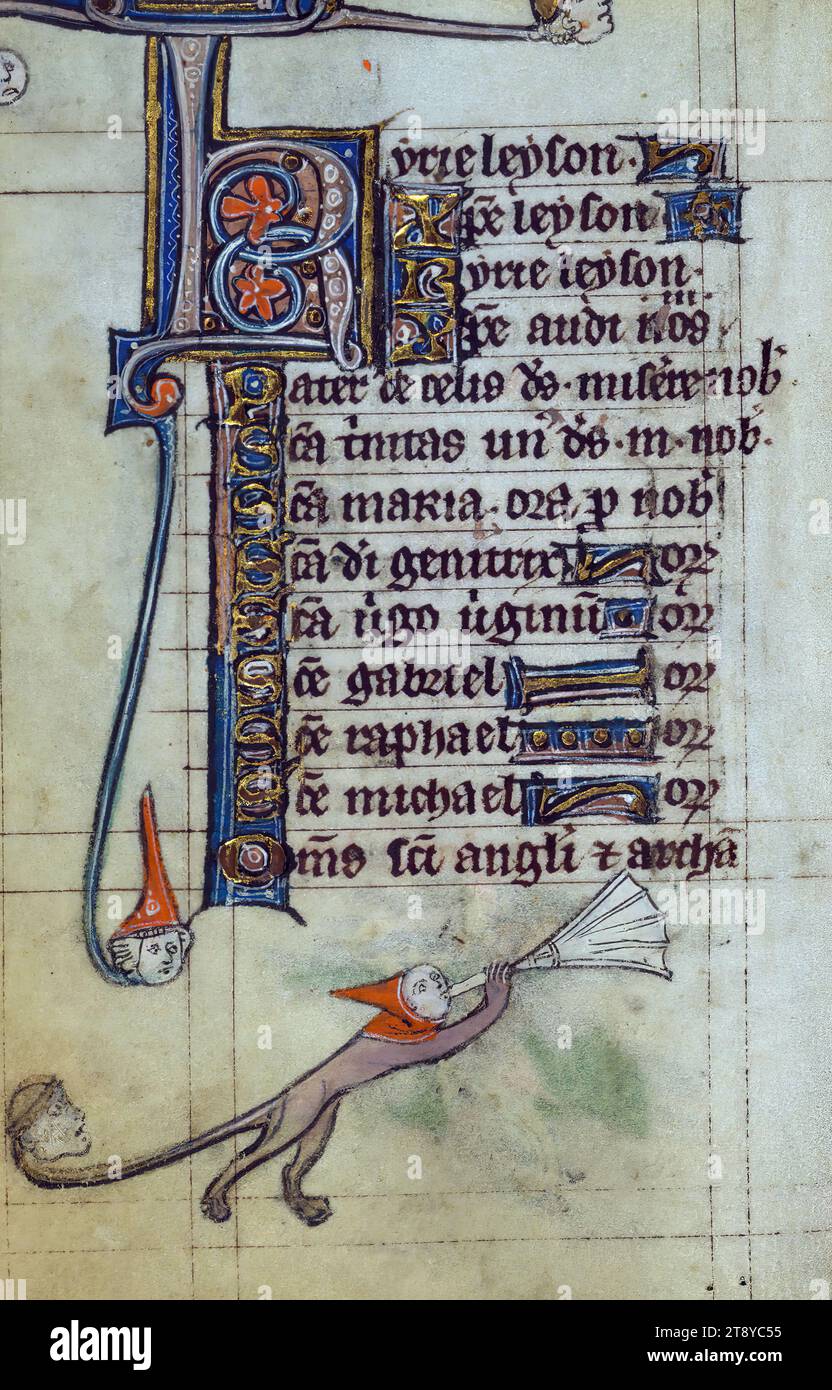 Kyrieleyson.
Xp̄e leyson
Kyrie leyson.
Xp̄e audi nos
.iii.
Pater de celis d̄s. misēre nob̄
Sc̄a t̄initas un̄ d̄s. m. nob̄.
Sc̄a maria. ora p̱ nob̄
Sc̄a dī genitrix oꝝ
Sc̄a ūgo ūginū oꝝ
Sc̄e gabriel oꝝ
Sc̄e raphael oꝝ
Sc̄e michael oꝝ
Om̄s sc̄i anglī ⁊ archā
alamy
Image ID: 2T8YC55
www.alamy.com